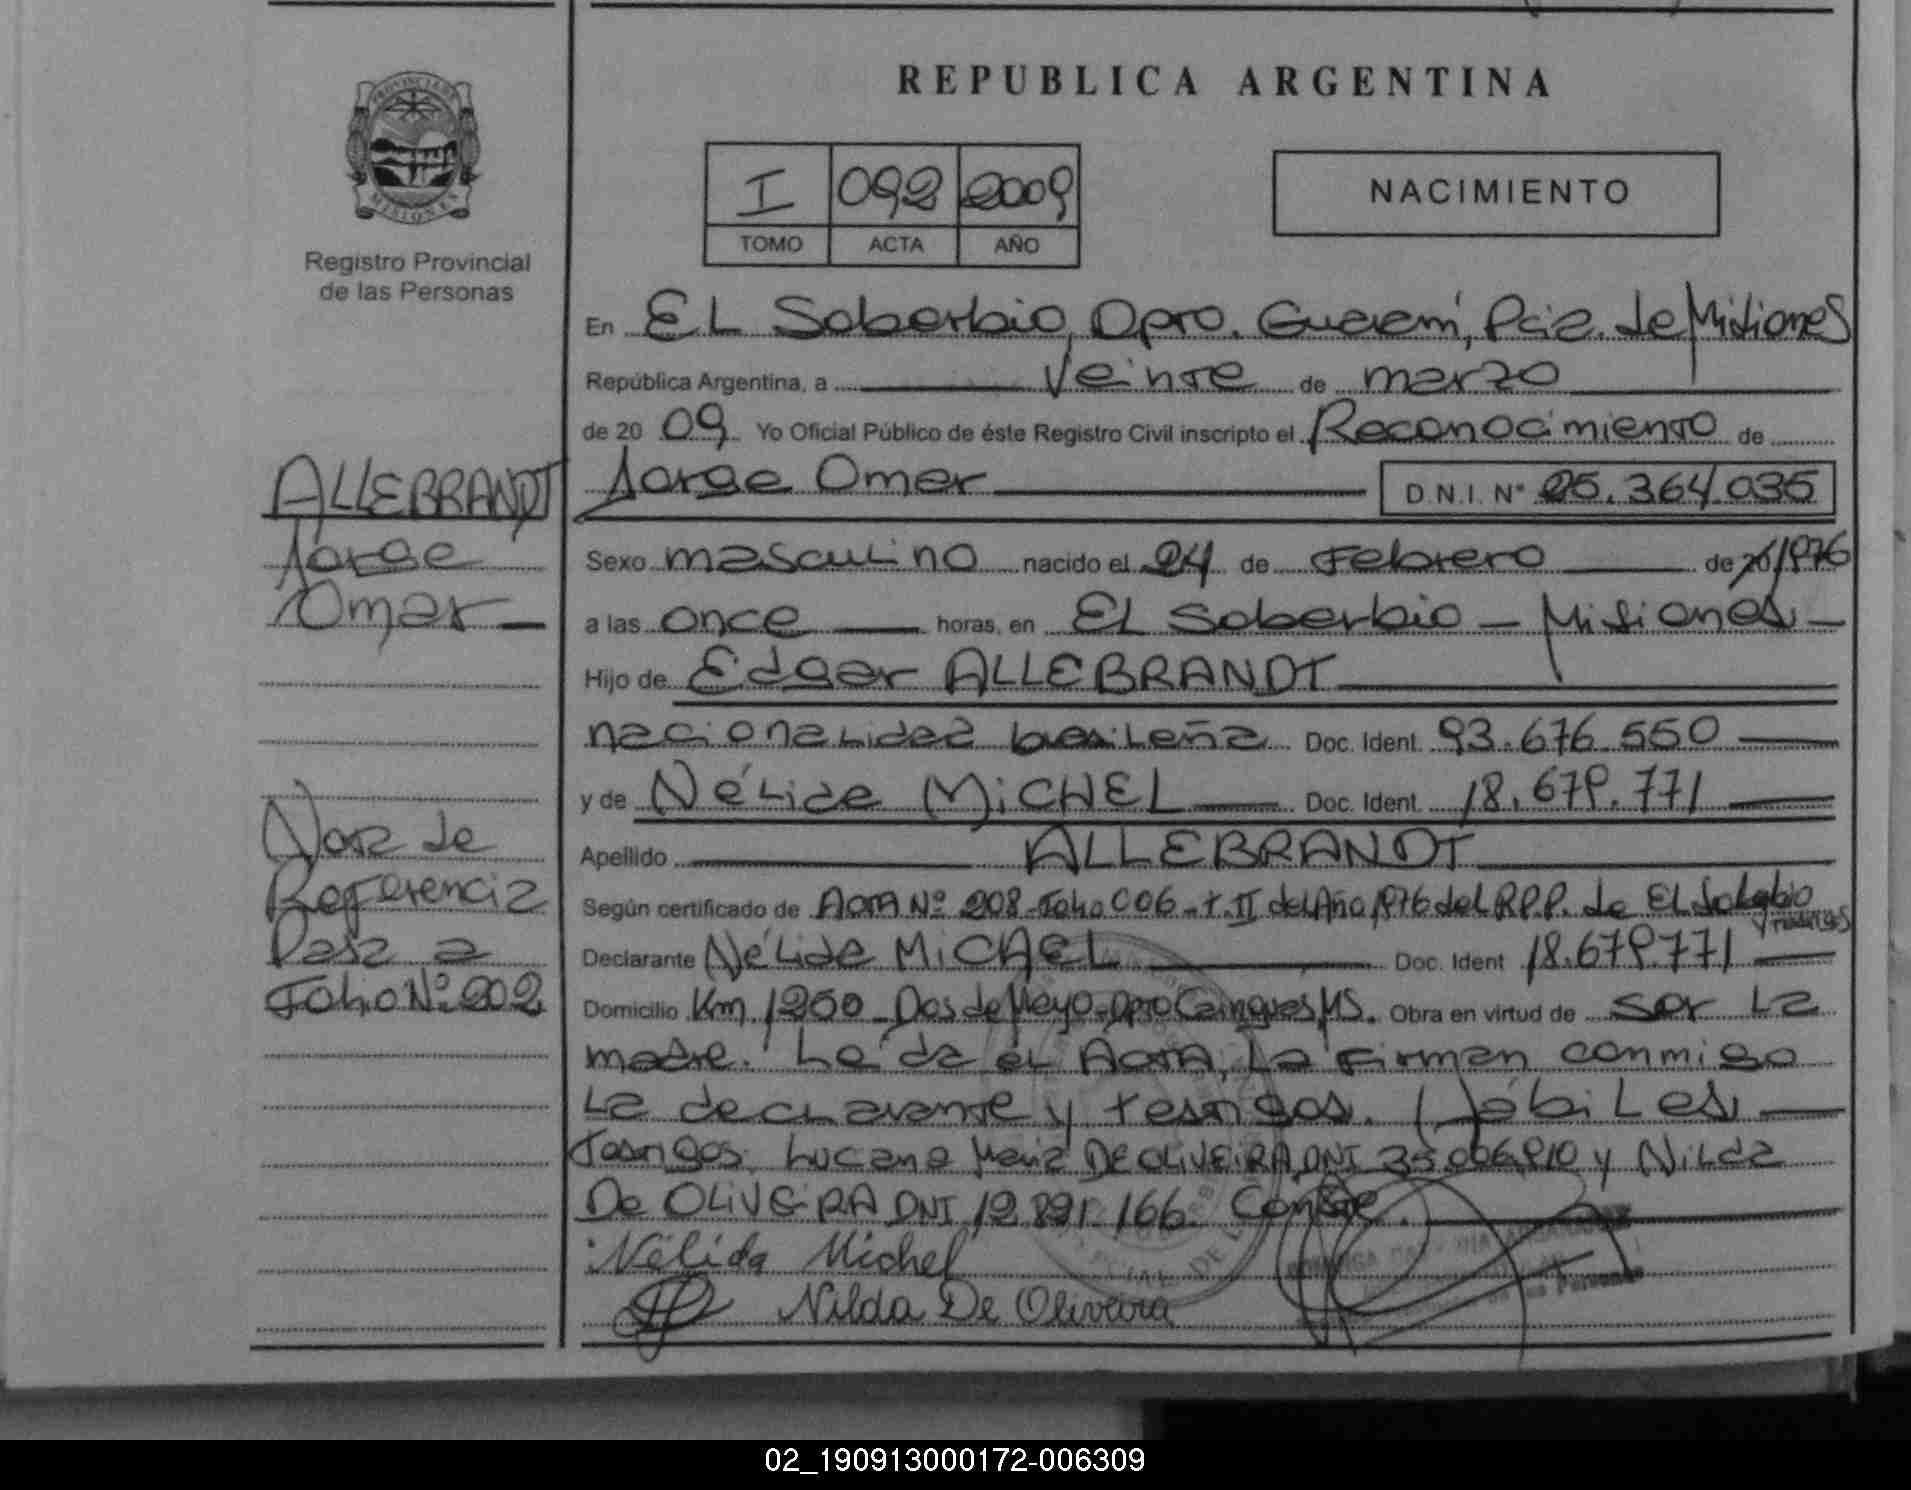 REPUBLICA ARGENTINA
I 092 2009
TOMO ACTA AÑO
NACIMIENTO
PROVINCIA DE
MISIONES
Registro Provincial
de las Personas
En EL Soberbio, Dpto. Guaraní, Pcia. de Misiones
República Argentina, a veinte de marzo
de 2009 Yo Oficial Público de éste Registro Civil inscripto el Reconocimiento de
Jorge Omar D.N.I. Nº 25.364.035
Sexo masculino nacido el 24 de Febrero de 20/1976
a las once horas, en EL Soberbio - Misiones -
Hijo de Edgar ALLEBRANDT
nacionalidad brasileña Doc. Ident. 93.676.550
y de Nélida MiCHEL Doc. Ident. 18.679.771
Apellido ALLEBRANDT
Según certificado de ACTA Nº 208 - Folio 006 - T. II del Año 1976 del R.P.P. de EL Soberbio
y testigos
Declarante Nélida MiCHEL Doc. Ident 18.679.771
Domicilio Km 1260 - Dos de Mayo - Dpto Cainguas, MS. Obra en virtud de ser La
madre. Leída el ACTA, La Firman conmigo
La declarante y testigos. Hábiles,
Testigos: Luciana María DE OLiVEiRA DNI 35.006.910 y Nilda
De OLiVEiRA DNI 12.891.166. Conste.
Nélida Michel
Nilda De Oliveira
ALLEBRANDT
Jorge
Omar
Nota de
Referencia
Pasa a
Folio Nº 202
02_190913000172-006309